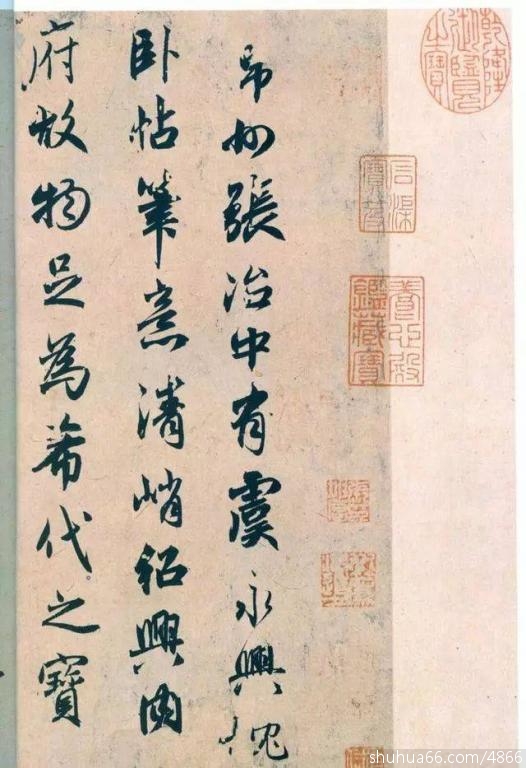 州張治中有虞永興
卧帖筆意清峭紹興内
府故物足為希代之寶
乾隆御覽之寶
石渠寶笈
養心殿鑑藏寶
shuhua66.com/4866